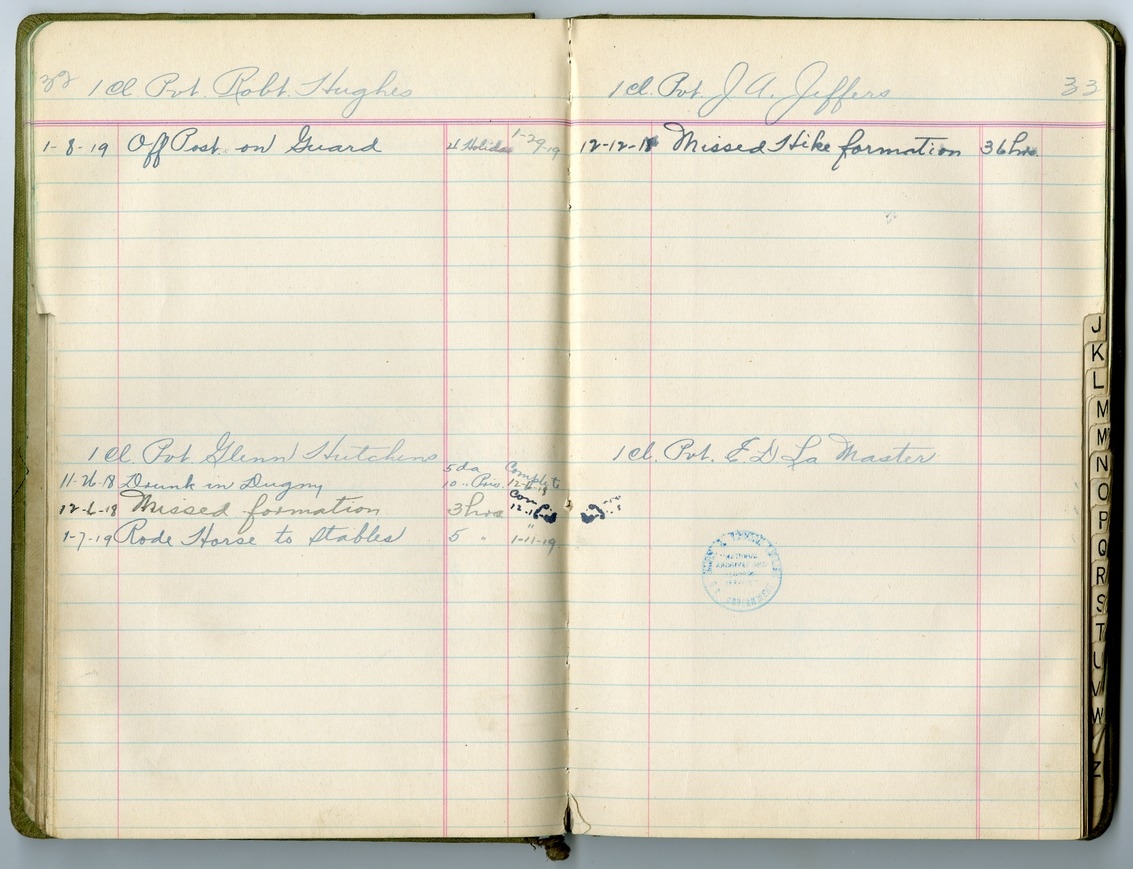 32 1 Cl Pvt. Robt. Hughes
1-8-19 Off Post on Guard 4 Holidas 1-29-19
1 Cl. Pvt. Glenn Hutchens
11-26-18 Drunk in Dugny 5 da 10 " Pris. Complet
12-6-18 Missed formation 3 hrs Com
1-7-19 Rode Horse to Stables 5 " 1-11-19
1 Cl. Pvt. J. A. Jeffers 33
12-12-18 Missed Hike formation 36 hrs.
1 Cl. Pvt. E D La Master
J
K
L
M
Mc
N
O
P
Q
R
S
T
U
V
W
Z